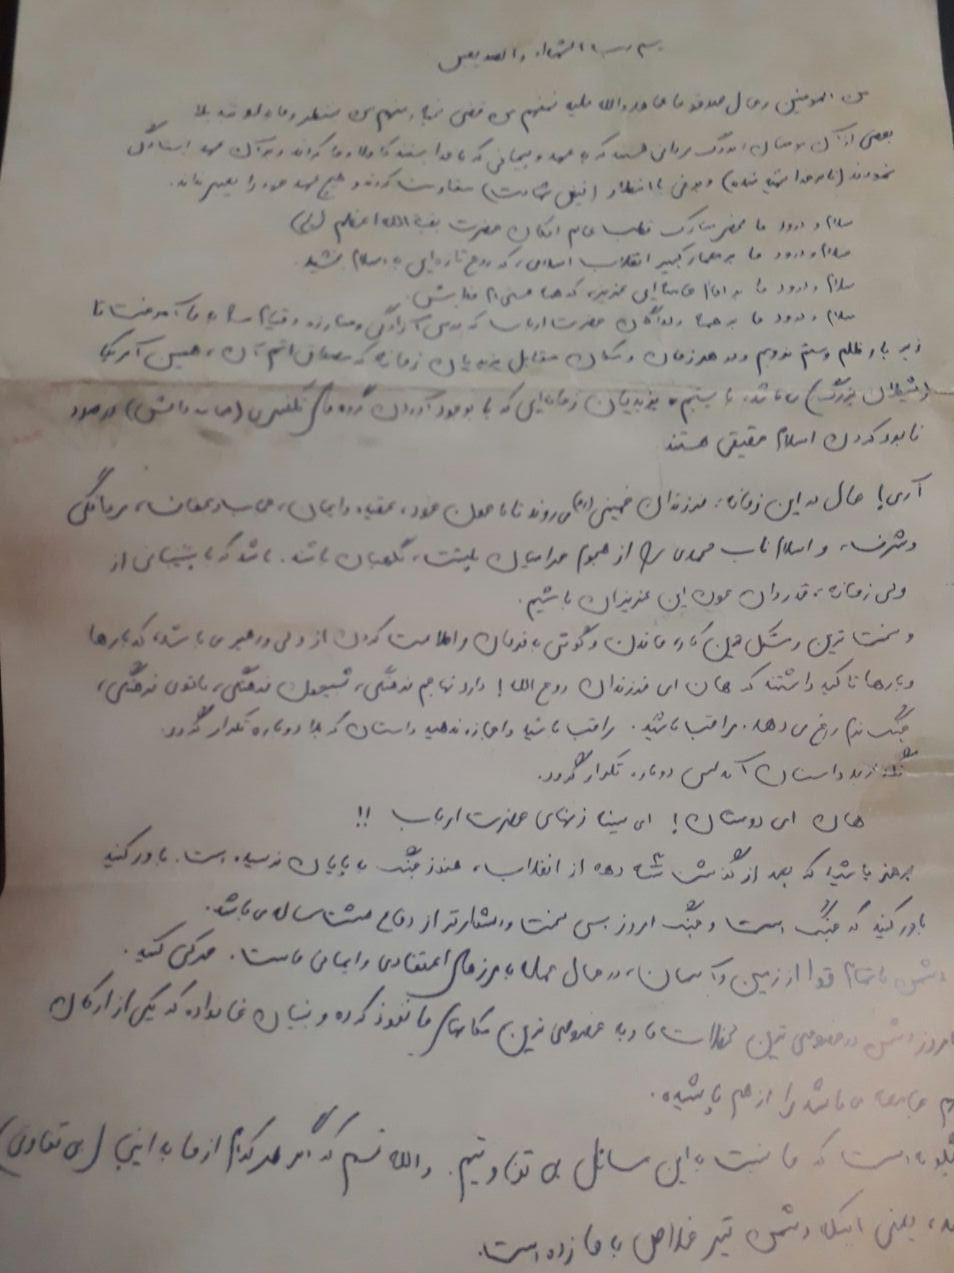 بسم رب الشهداء والصدیقین
من المومنین رجال صدقوا ما عاهدوالله علیه فمنهم من قضی نحبه ومنهم من ینتظر وما بدلو تبدیلا
بعضی از آن مومنان، بزرگ مردانی هستند که به عهد و پیمانی که با خدا بستند کاملا وفا کردند و بر آن عهد ایستادگی
نمودند (تا به راه خدا شهید شدند) و برخی با انتظار (فیض شهادت) مقاومت کردند و هیچ عهد خود را تغییر ندادند.
سلام و درود ما محضر مبارک قطب عالم امکان حضرت بقیة الله اعظم (عج)
سلام و درود ما به معمار کبیر انقلاب اسلامی، که روح تازه‌ایی به اسلام بخشید.
سلام و درود ما به امام خامنه‌ایی عزیز، که همه هستی‌ام فدایش.
سلام و درود ما به همه دلدادگان حضرت ارباب که درس آزادگی و مبارزه و قیام را به ما آموخت تا
زیر بار ظلم و ستم نرویم و در هر زمان و مکان مقابل یزیدیان زمانه که مصداق اتم آن، همین آمریکا
(شیطان بزرگ) می‌باشد، بایستیم. یزیدیان زمانه‌ایی که با بوجود آوردن گروه های تکفیری (مانند داعش) در صدد
نابود کردن اسلام حقیقی هستند
آری! حال در این زمانه، فرزندان خمینی (ره) می‌روند تا با خون خود، عقیده و ایمان، حجاب و عفاف، مردانگی
و شرف، و اسلام ناب محمدی را از هجوم حرامیان پلیشت، نگهبان باشند. باشد که با پشتیبانی از
ولی زمانه، قدردان خون این عزیزان باشیم.
و سخت ترین و مشکل ترین کار، ماندن و گوش به فرمان و اطاعت کردن از ولی و رهبری می باشد، که بارها
و بارها تاکید داشتند که هان ای فرزندان روح الله! دارد تهاجم فرهنگی، شبیخون فرهنگی، ناتوی فرهنگی،
جنگ نرم رخ می دهد. مراقب باشید. مراقب باشید و اجازه ندهید داستان کربلا دوباره تکرار گردد.
نگذارید داستان آندلس دوباره تکرار گردد.
هان ای دوستان! ای سینه زنهای حضرت ارباب !!
برحذر باشید که بعد از گذشت ۴ دهه از انقلاب، هنوز جنگ به پایان نرسیده است. باور کنید
باور کنید که جنگ است و جنگ امروز بسی سخت و دشوارتر از دفاع هشت ساله می باشد.
دشمن با تمام قوا از زمین و آسمان، در حال حمله به مرزهای اعتقادی و ایمانی ماست. حرکتی کنید.
امروز دشمن در خصوصی ترین لحظات ما و به خصوصی ترین مکانهای ما نفوذ کرده و بنیان خانواده که یکی از ارکان
جامعه می باشد را از هم پاشیده.
چگونه است که ما نسبت به این مسائل بی تفاوتیم. والله قسم که اگر هر کدام از ما به اینجا (بی تفاوتی)
یعنی اینکه دشمن تیر خلاص به ما زده است.